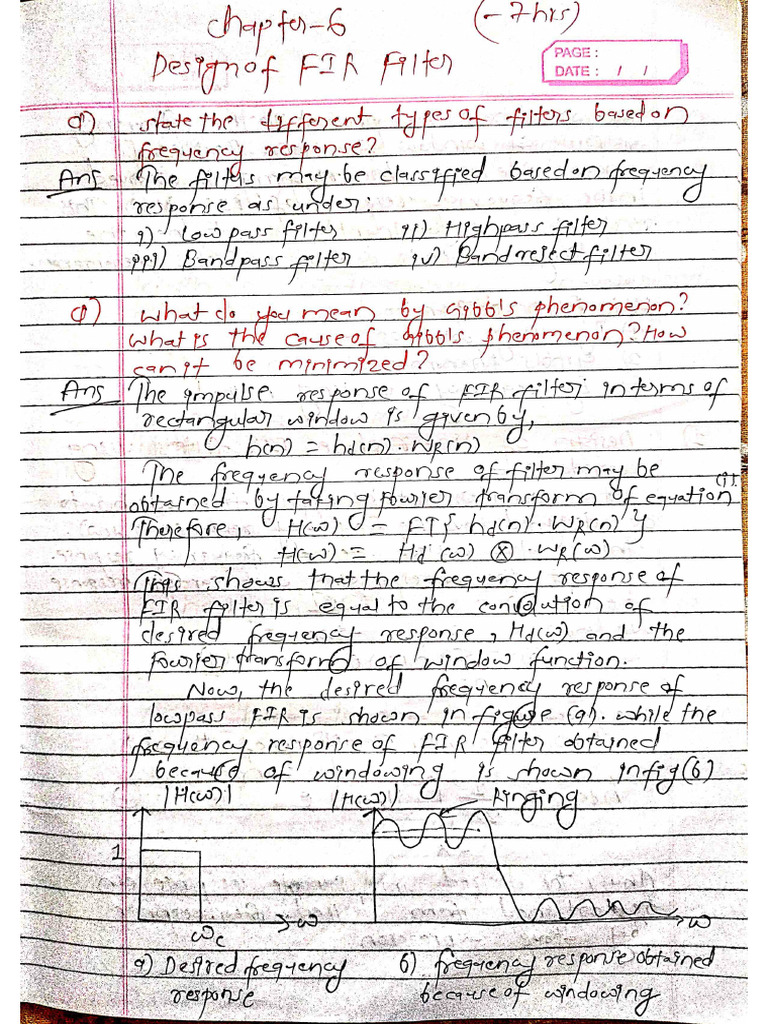 Chapter-6 (-7hrs)
Design of FIR Filter
PAGE :
DATE : / /
Q) state the different types of filters based on
frequency response?
Ans The filters may be classified based on frequency
response as under:
i) Low pass filter ii) Highpass filter
iii) Bandpass filter iv) Bandreject filter
Q) What do you mean by Gibb's phenomenon?
What is the cause of Gibb's phenomenon? How
can it be minimized?
Ans The impulse response of FIR filter in terms of
rectangular window is given by,
h(n) = hd(n). WR(n)
The frequency response of filter may be
obtained by taking fourier transform of equation (i).
Therefore, H(ω) = FT{ hd(n). WR(n) }
H(ω) = Hd (ω) ⊗ . WR(ω)
This shows that the frequency response of
FIR filter is equal to the convolution of
desired frequency response, Hd(ω) and the
fourier transform of window function.
Now, the desired frequency response of
lowpass FIR is shown in figure (a). while the
frequency response of FIR filter obtained
because of windowing is shown in fig(b)
|H(ω)| |H(ω)| Ringing
1
ωc ω ω
a) Desired frequency b) frequency response obtained
response because of windowing